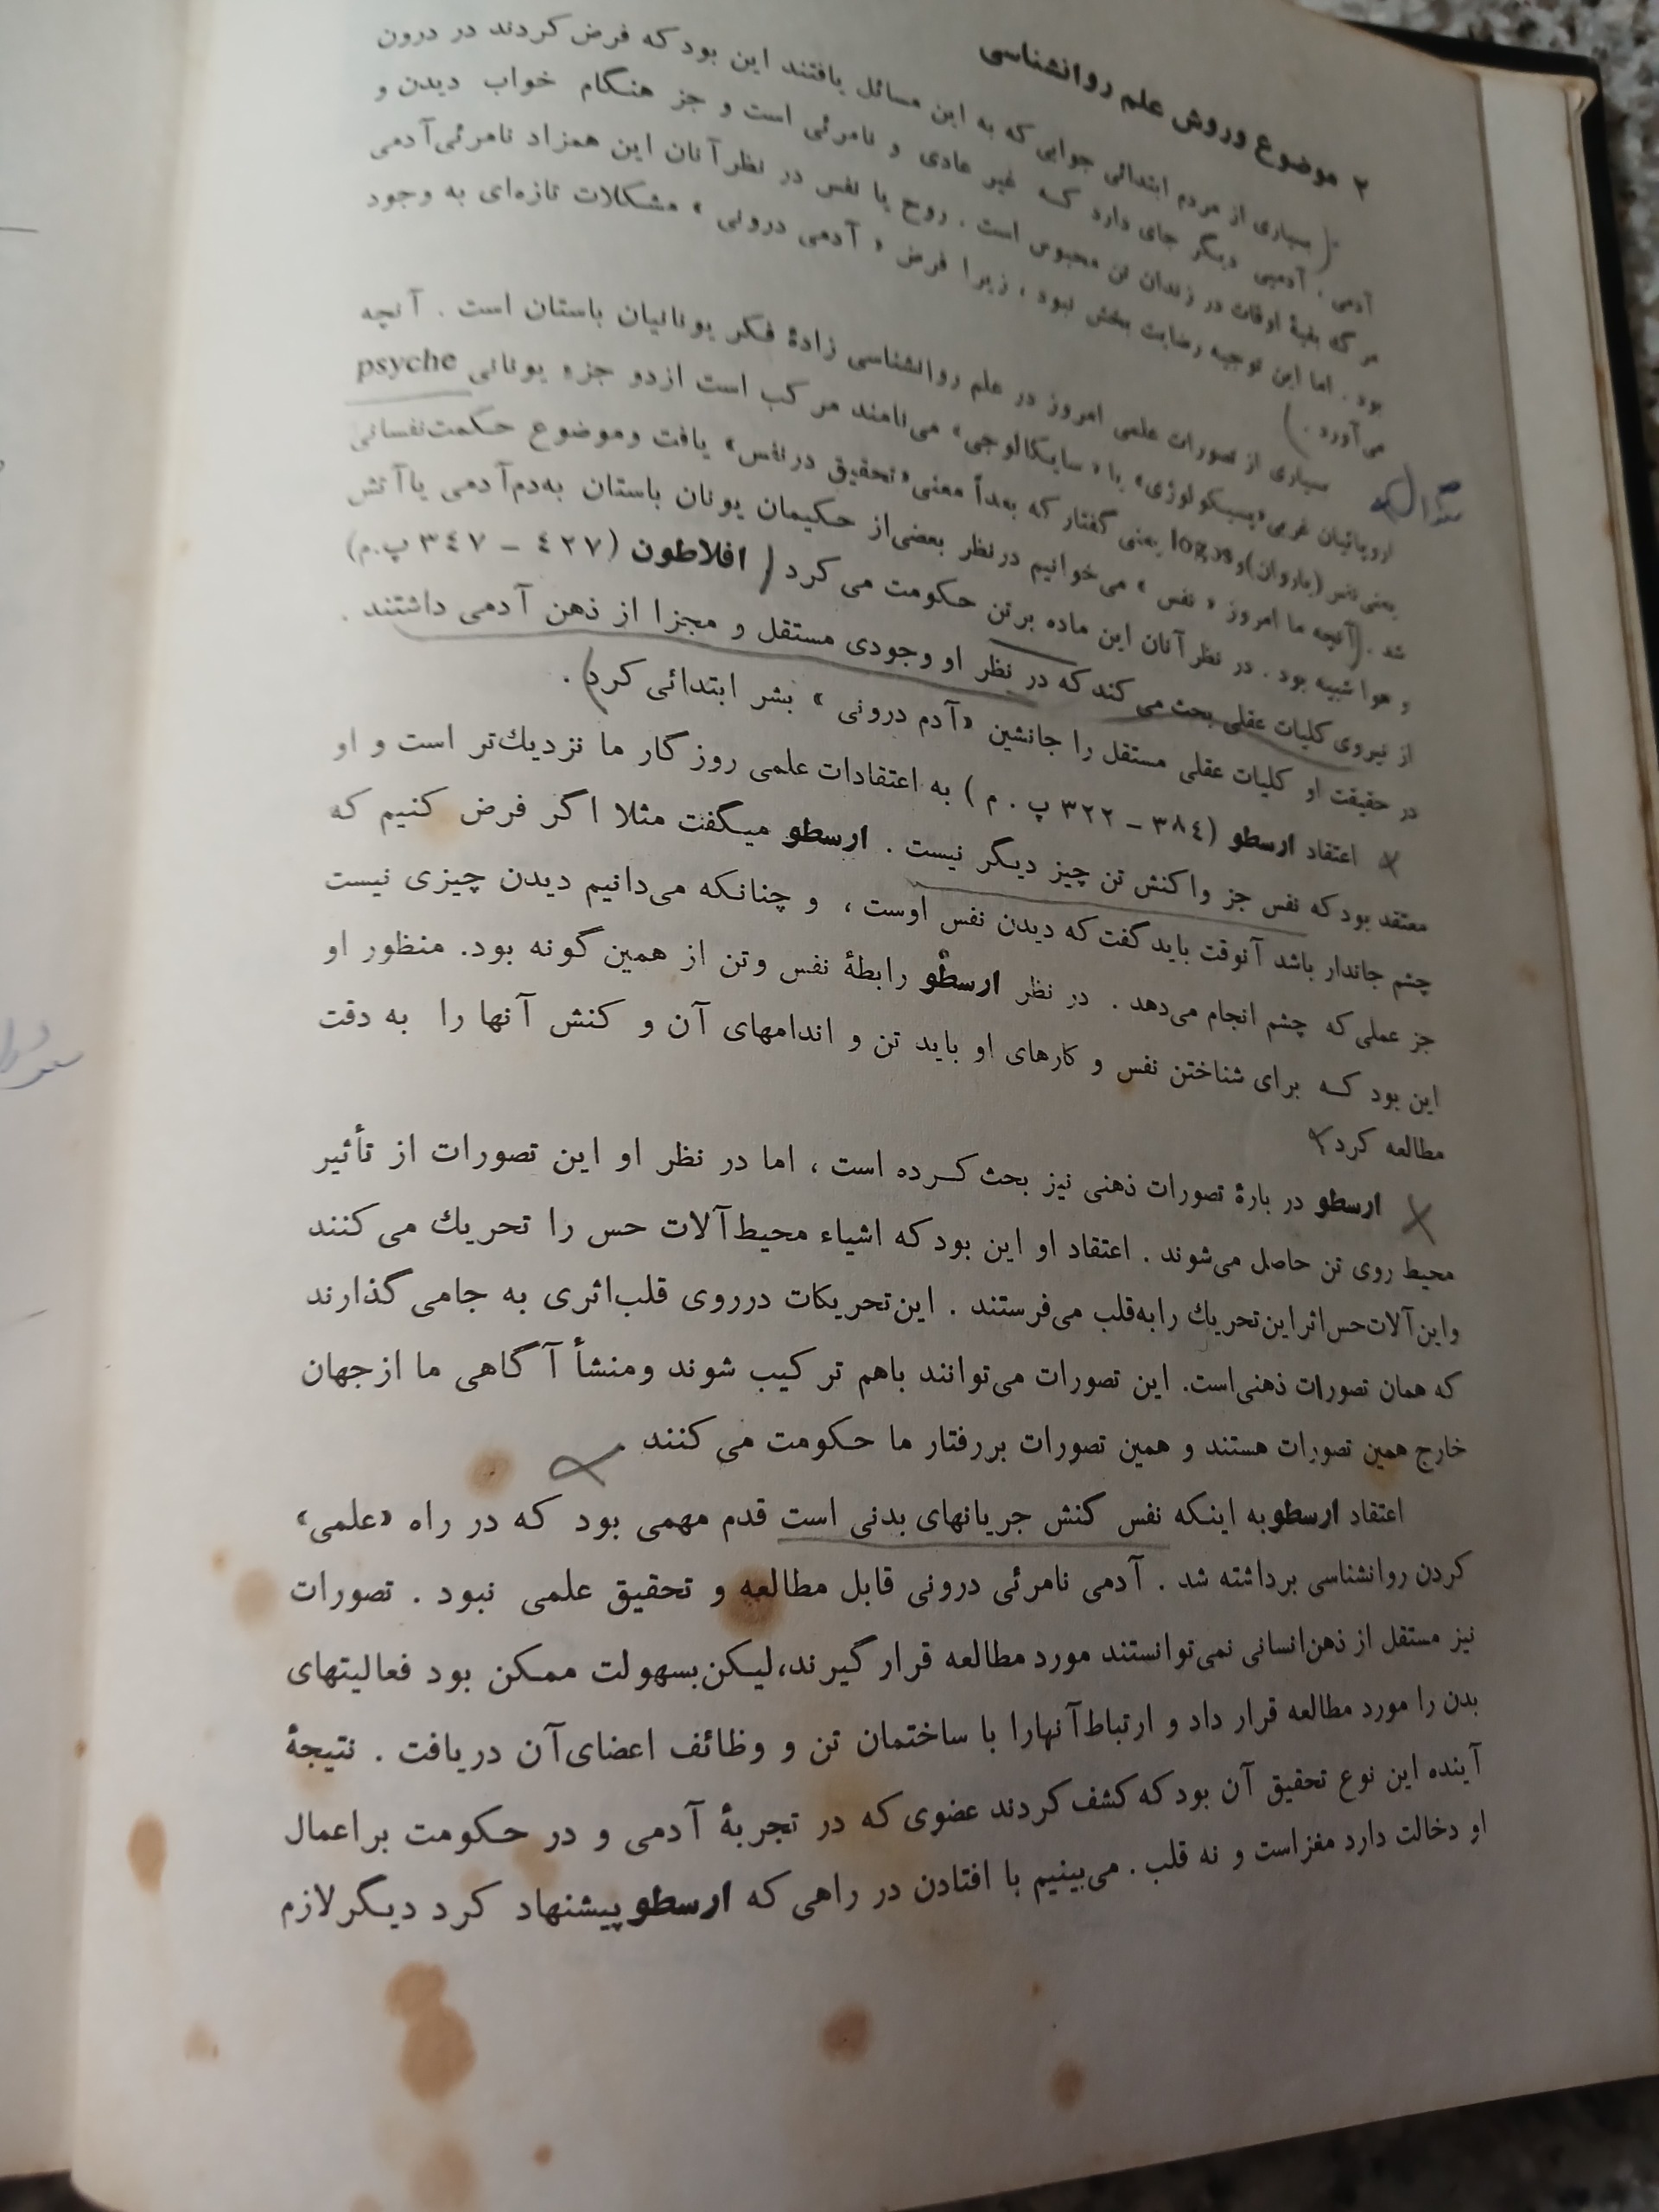 ۲ موضوع وروش علم روانشناسی
بسیاری از مردم ابتدائی جوابی که به این مسائل یافتند این بود که فرض کردند در درون
آدمی ، آدمیی دیگر جای دارد که غیر عادی و نامرئی است و جز هنگام خواب دیدن و
مرگ بقیهٔ اوقات در زندان تن محبوس است . روح یا نفس در نظر آنان این همزاد نامرئی آدمی
بود . اما این توجیه رضایت بخش نبود ، زیرا فرض « آدمی درونی » مشکلات تازه‌ای به وجود
می‌آورد . )
سؤال
بسیاری از تصورات علمی امروز در علم روانشناسی زادهٔ فکر یونانیان باستان است . آنچه
اروپائیان غربی «پسیکولوژی» یا « سایکالوجی» می‌نامند مرکب است از دو جزء یونانی psyche
یعنی نفس (یاروان) و logos یعنی گفتار که بعداً معنی «تحقیق در نفس» یافت و موضوع حکمت نفسانی
شد . (آنچه ما امروز « نفس » می‌خوانیم در نظر بعضی از حکیمان یونان باستان به دم آدمی یا آتش
و هوا شبیه بود . در نظر آنان این ماده بر تن حکومت می کرد ( افلاطون (۴۲۷ – ۳۴۷ پ.م)
از نیروی کلیات عقلی بحث می کند که در نظر او وجودی مستقل و مجزا از ذهن آدمی داشتند .
در حقیقت او کلیات عقلی مستقل را جانشین «آدم درونی » بشر ابتدائی کرد) .
اعتقاد ارسطو (۳۸۴ – ۳۲۲ پ . م ) به اعتقادات علمی روز گار ما نزدیك‌تر است و او
معتقد بود که نفس جز واکنش تن چیز دیگر نیست . ارسطو میگفت مثلا اگر فرض کنیم که
چشم جاندار باشد آنوقت باید گفت که دیدن نفس اوست ، و چنانکه می‌دانیم دیدن چیزی نیست
جز عملی که چشم انجام می‌دهد . در نظر ارسطو رابطهٔ نفس و تن از همین گونه بود. منظور او
این بود که برای شناختن نفس و کارهای او باید تن و اندامهای آن و کنش آنها را به دقت
مطالعه کرد
ارسطو در بارهٔ تصورات ذهنی نیز بحث کرده است ، اما در نظر او این تصورات از تأثیر
محیط روی تن حاصل می‌شوند . اعتقاد او این بود که اشیاء محیط آلات حس را تحریك می کنند
و این آلات حس اثر این تحریك را به قلب می‌فرستند . این تحریکات در روی قلب اثری به جا می گذارند
که همان تصورات ذهنی است. این تصورات می‌توانند باهم ترکیب شوند و منشأ آگاهی ما از جهان
خارج همین تصورات هستند و همین تصورات بر رفتار ما حکومت می کنند .
اعتقاد ارسطو به اینکه نفس کنش جریانهای بدنی است قدم مهمی بود که در راه «علمی»
کردن روانشناسی برداشته شد . آدمی نامرئی درونی قابل مطالعه و تحقیق علمی نبود . تصورات
نیز مستقل از ذهن انسانی نمی توانستند مورد مطالعه قرار گیرند، لیکن بسهولت ممکن بود فعالیتهای
بدن را مورد مطالعه قرار داد و ارتباط آنها را با ساختمان تن و وظائف اعضای آن دریافت . نتیجهٔ
آینده این نوع تحقیق آن بود که کشف کردند عضوی که در تجربهٔ آدمی و در حکومت بر اعمال
او دخالت دارد مغز است و نه قلب . می‌بینیم با افتادن در راهی که ارسطو پیشنهاد کرد دیگر لازم